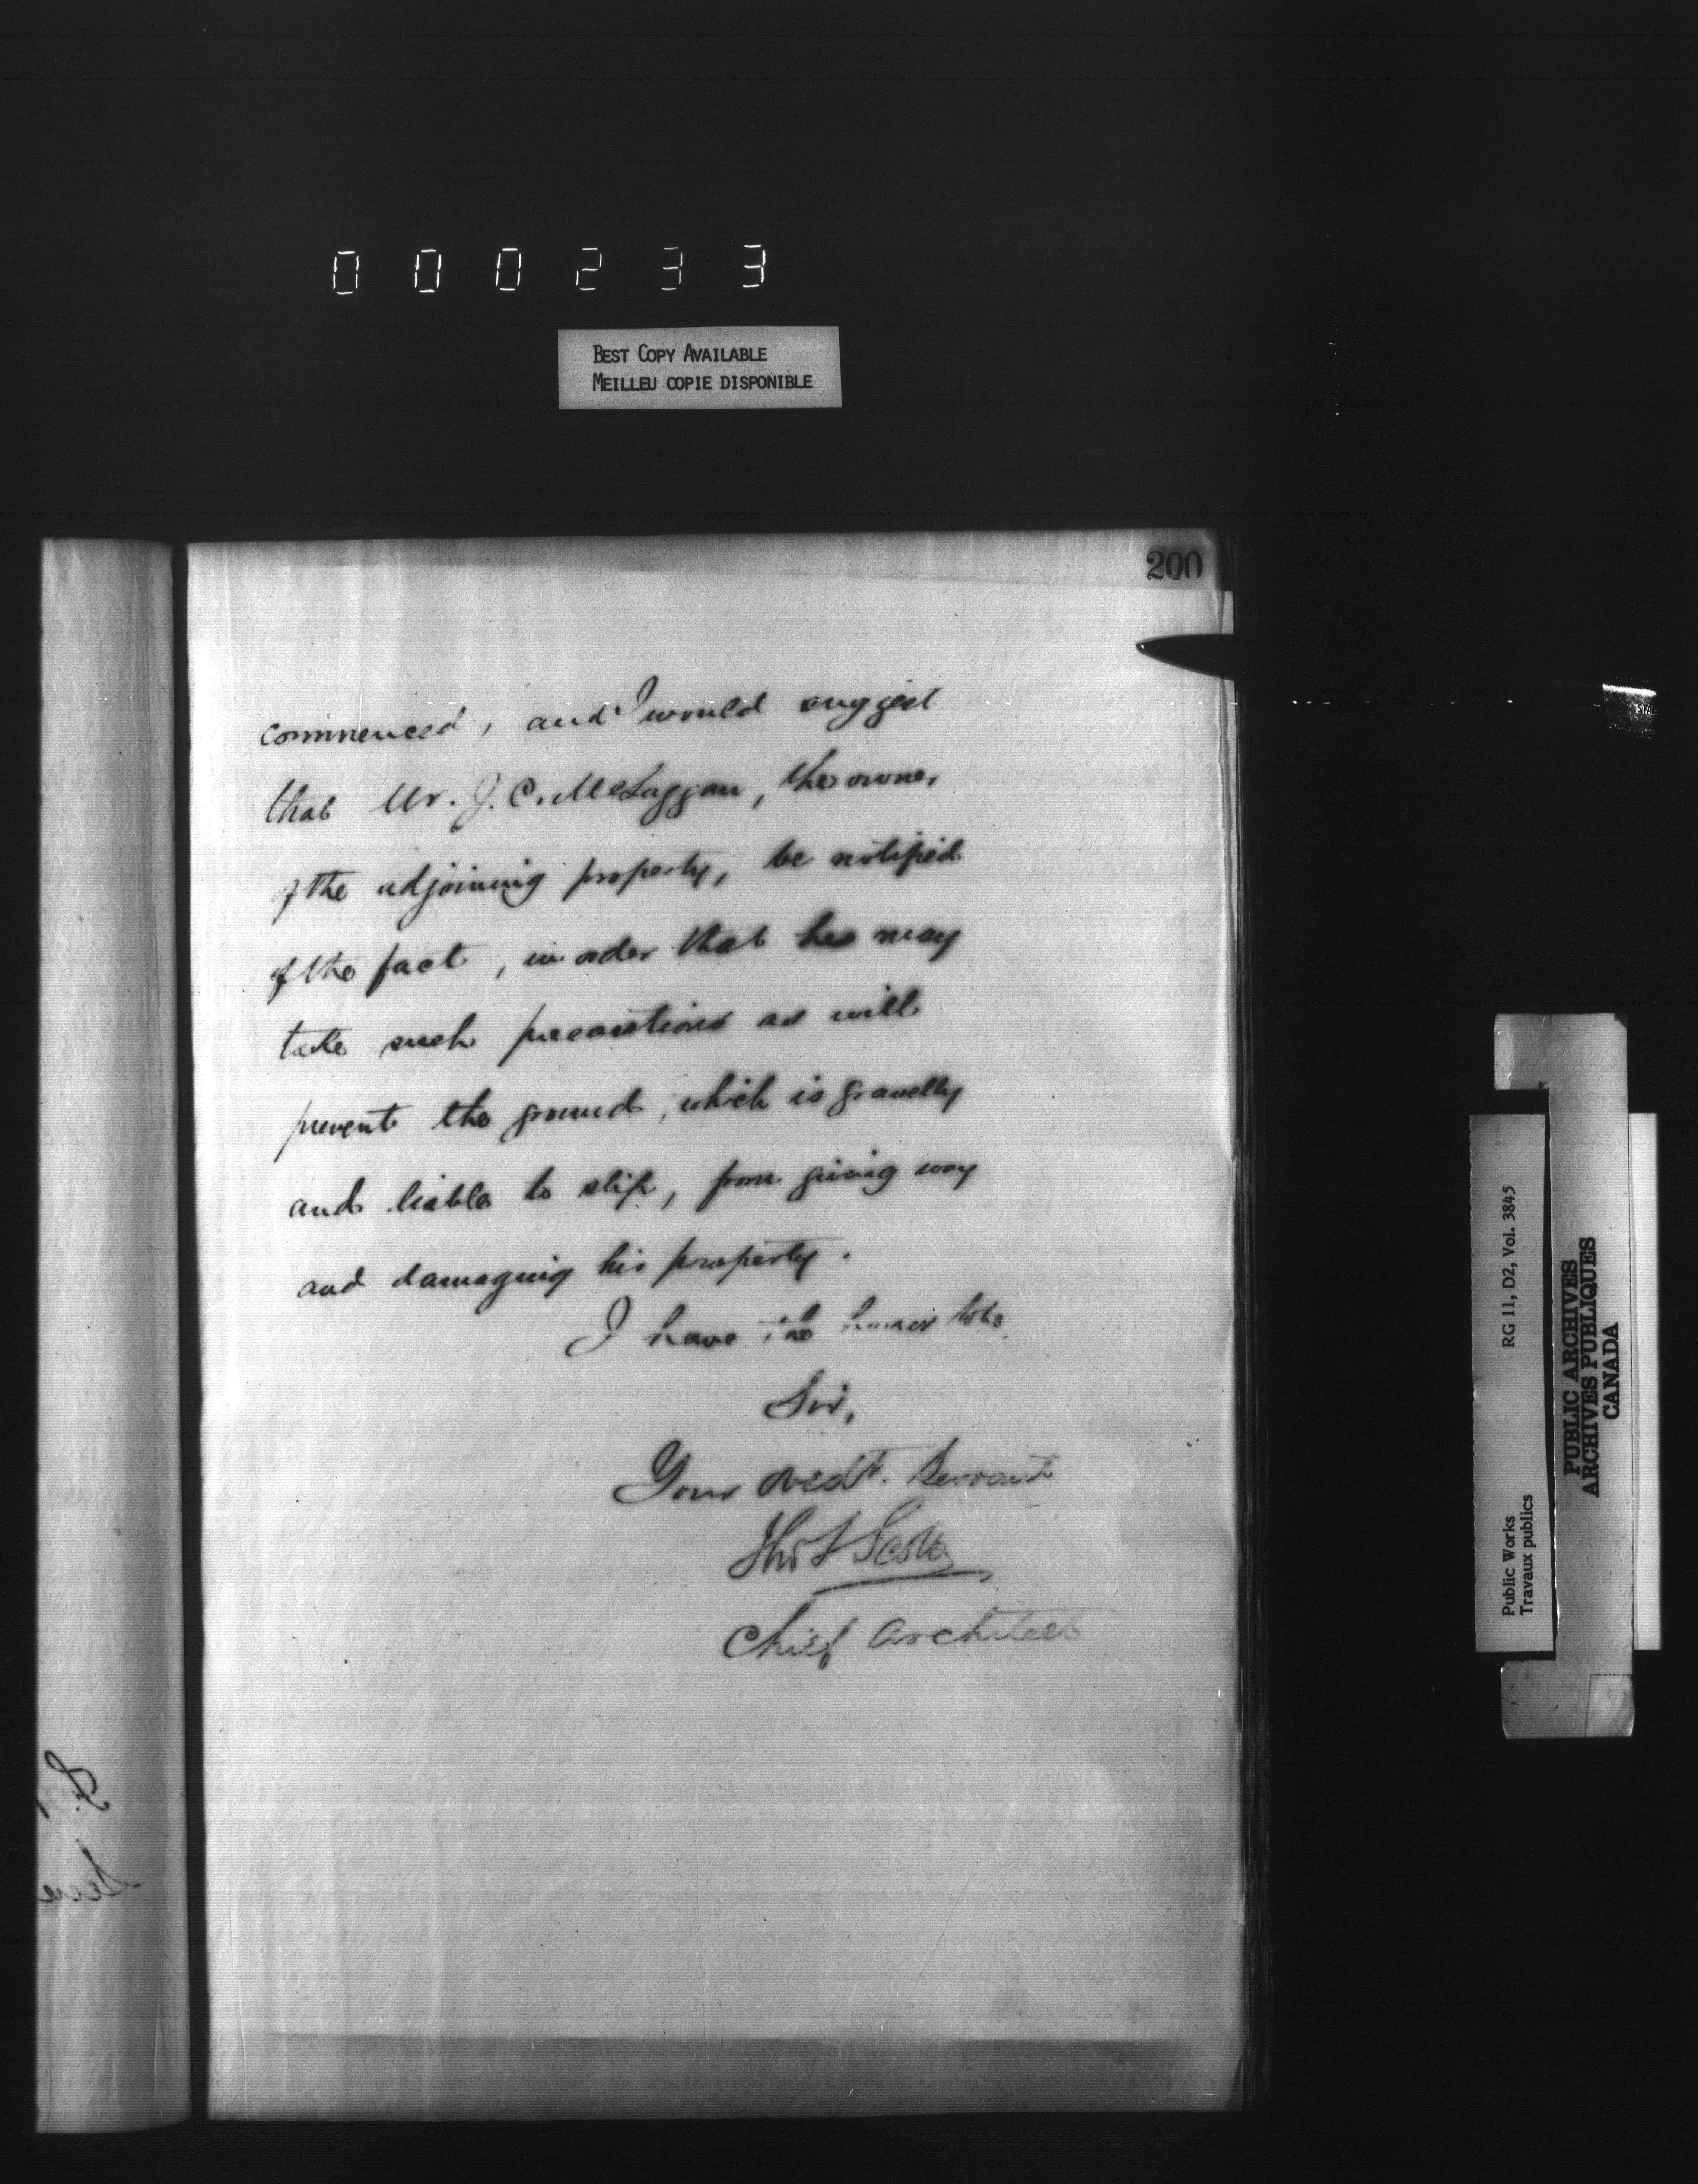 000233
BEST COPY AVAILABLE
MEILLEU COPIE DISPONIBLE
200
commenced, and I would suggest
that Mr. J. C. McLaggan, the owner
of the adjoining property, be notified
of the fact, in order that he may
take such precautions as will
prevent the ground, which is gravelly
and liable to slip, from giving way
and damaging his property.
I have the honor to be
Sir,
Your obedt. Servant
Thos S Scott
Chief Architect
RG 11, D2, Vol. 3845
Public Works
Travaux publics
PUBLIC ARCHIVES
ARCHIVES PUBLIQUES
CANADA